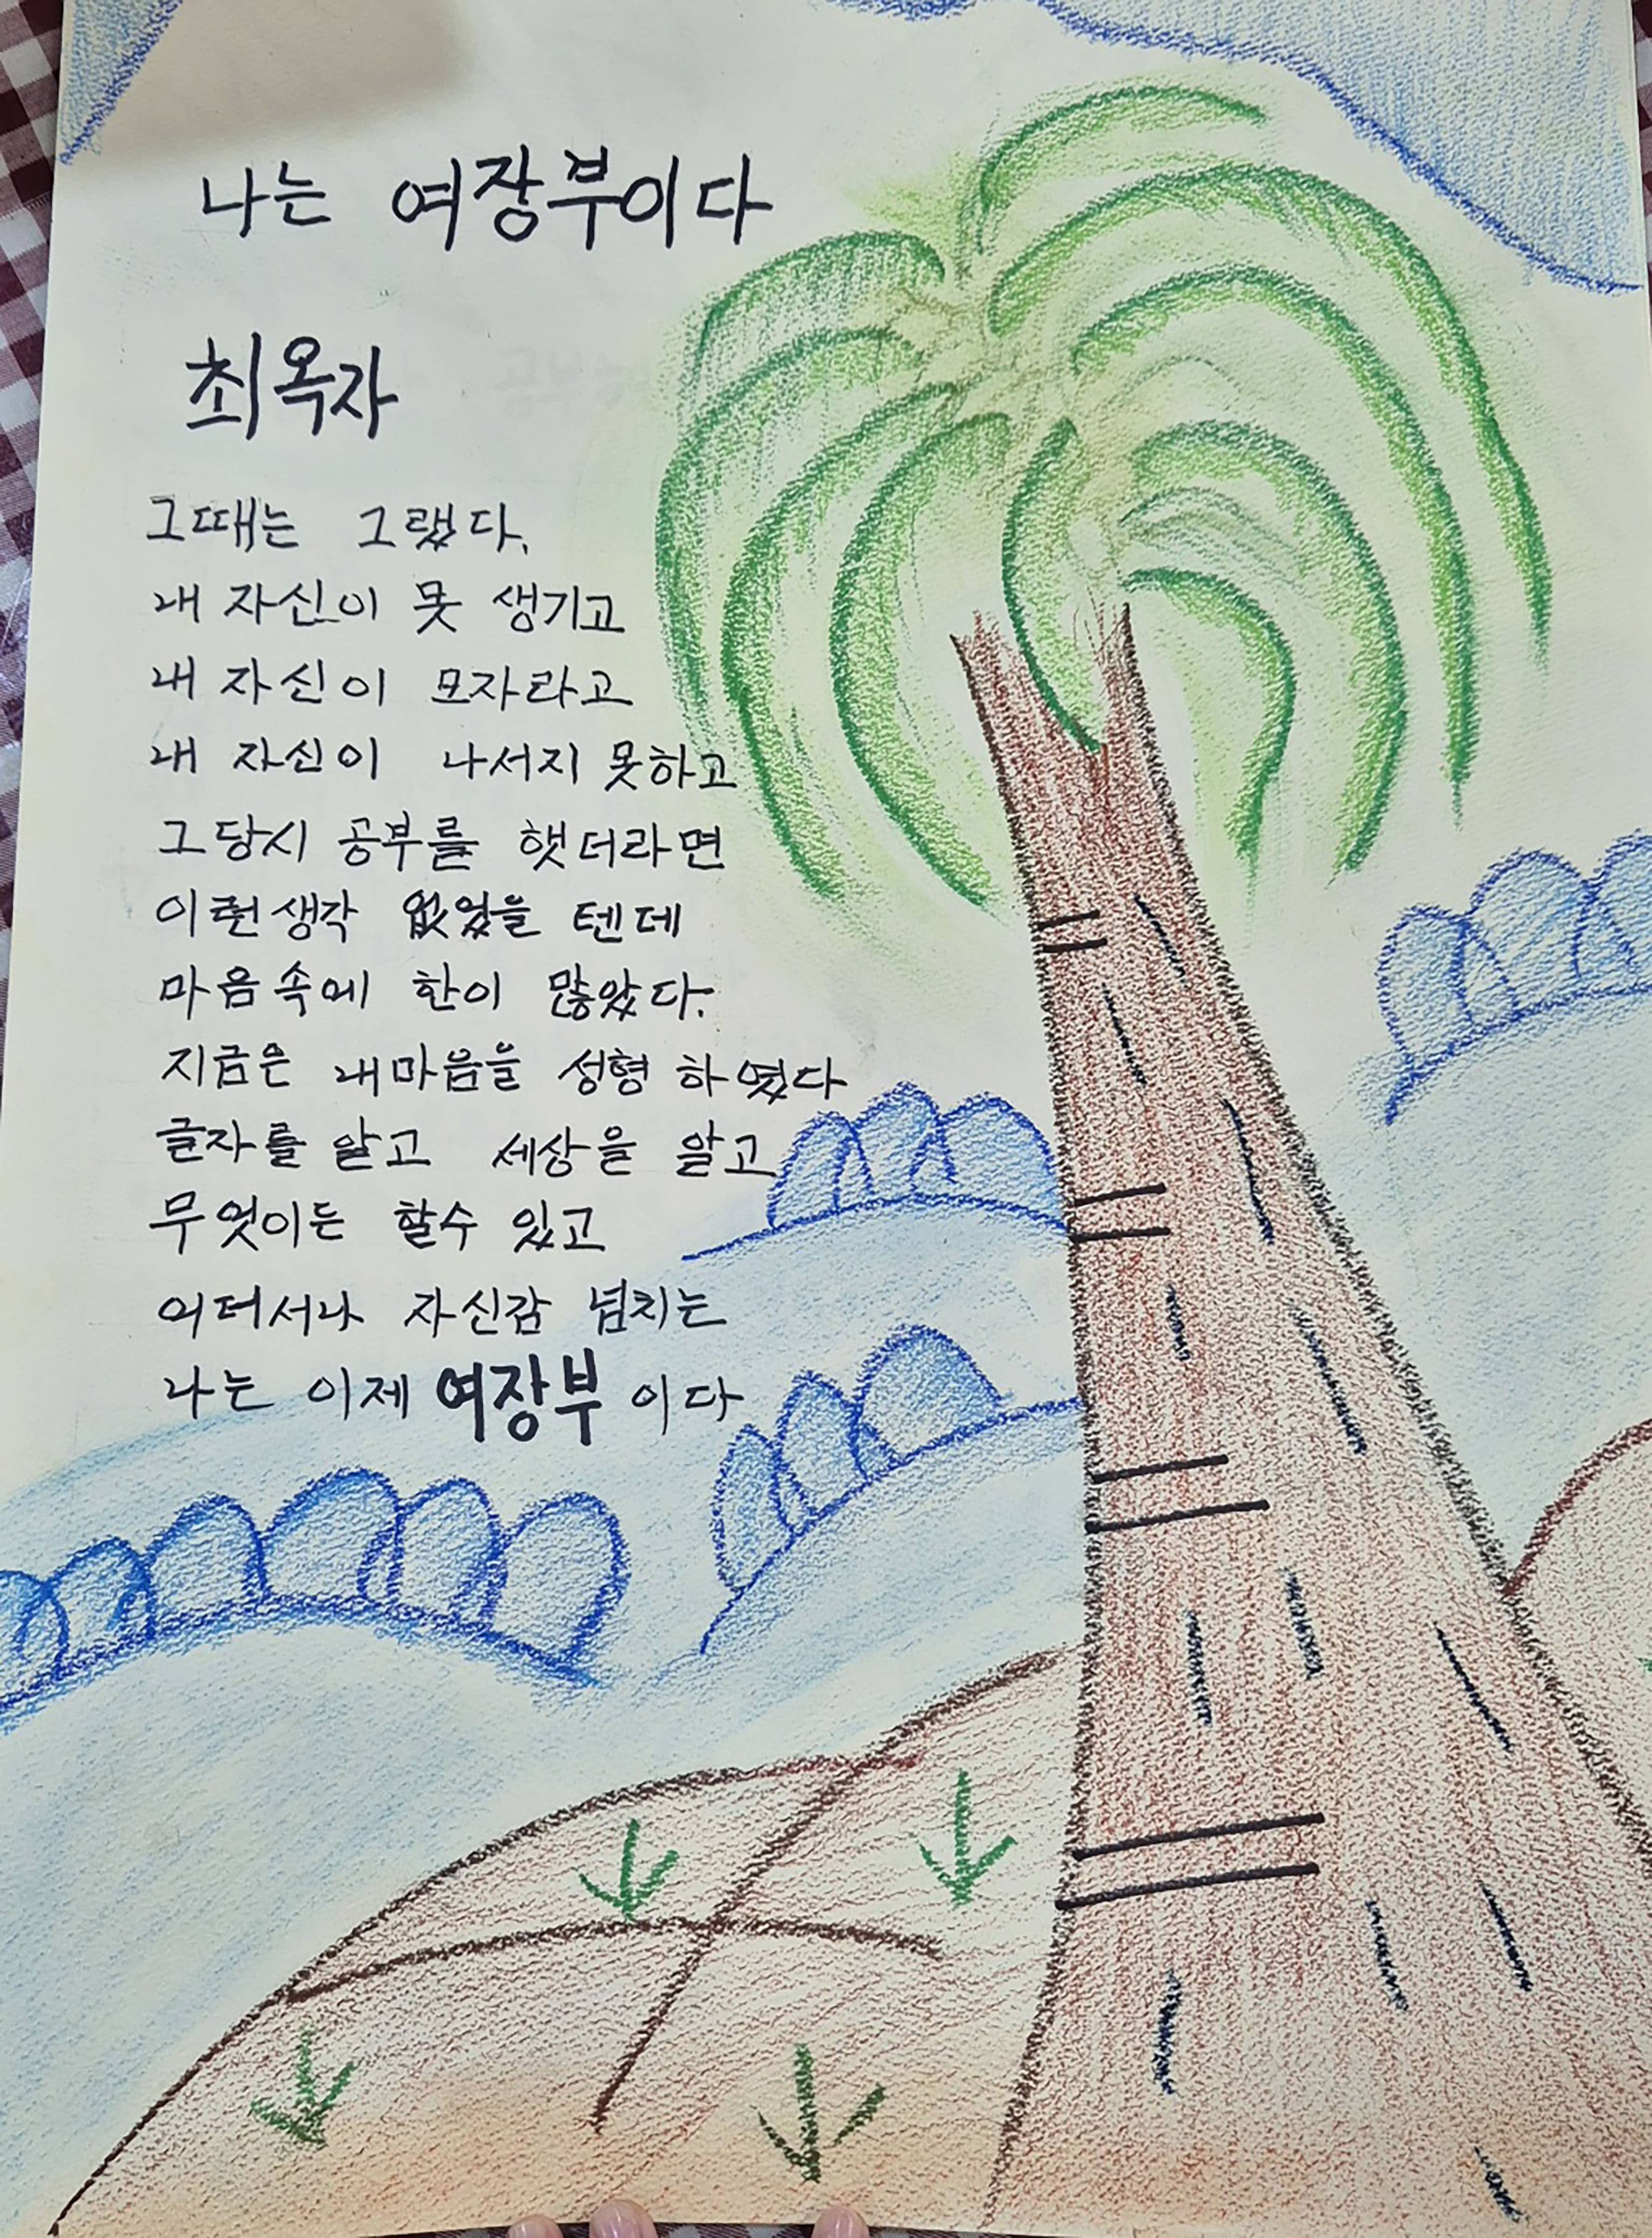 나는 여장부이다
최옥자
그때는 그랬다.
내 자신이 못 생기고
내 자신이 모자라고
내 자신이 나서지 못하고
그당시 공부를 햇더라면
이런생각 없었을 텐데
마음속에 한이 많았다.
지금은 내마음을 성형 하였다
글자를 알고 세상을 알고
무엇이든 할수 있고
어데서나 자신감 넘치는
나는 이제 여장부 이다